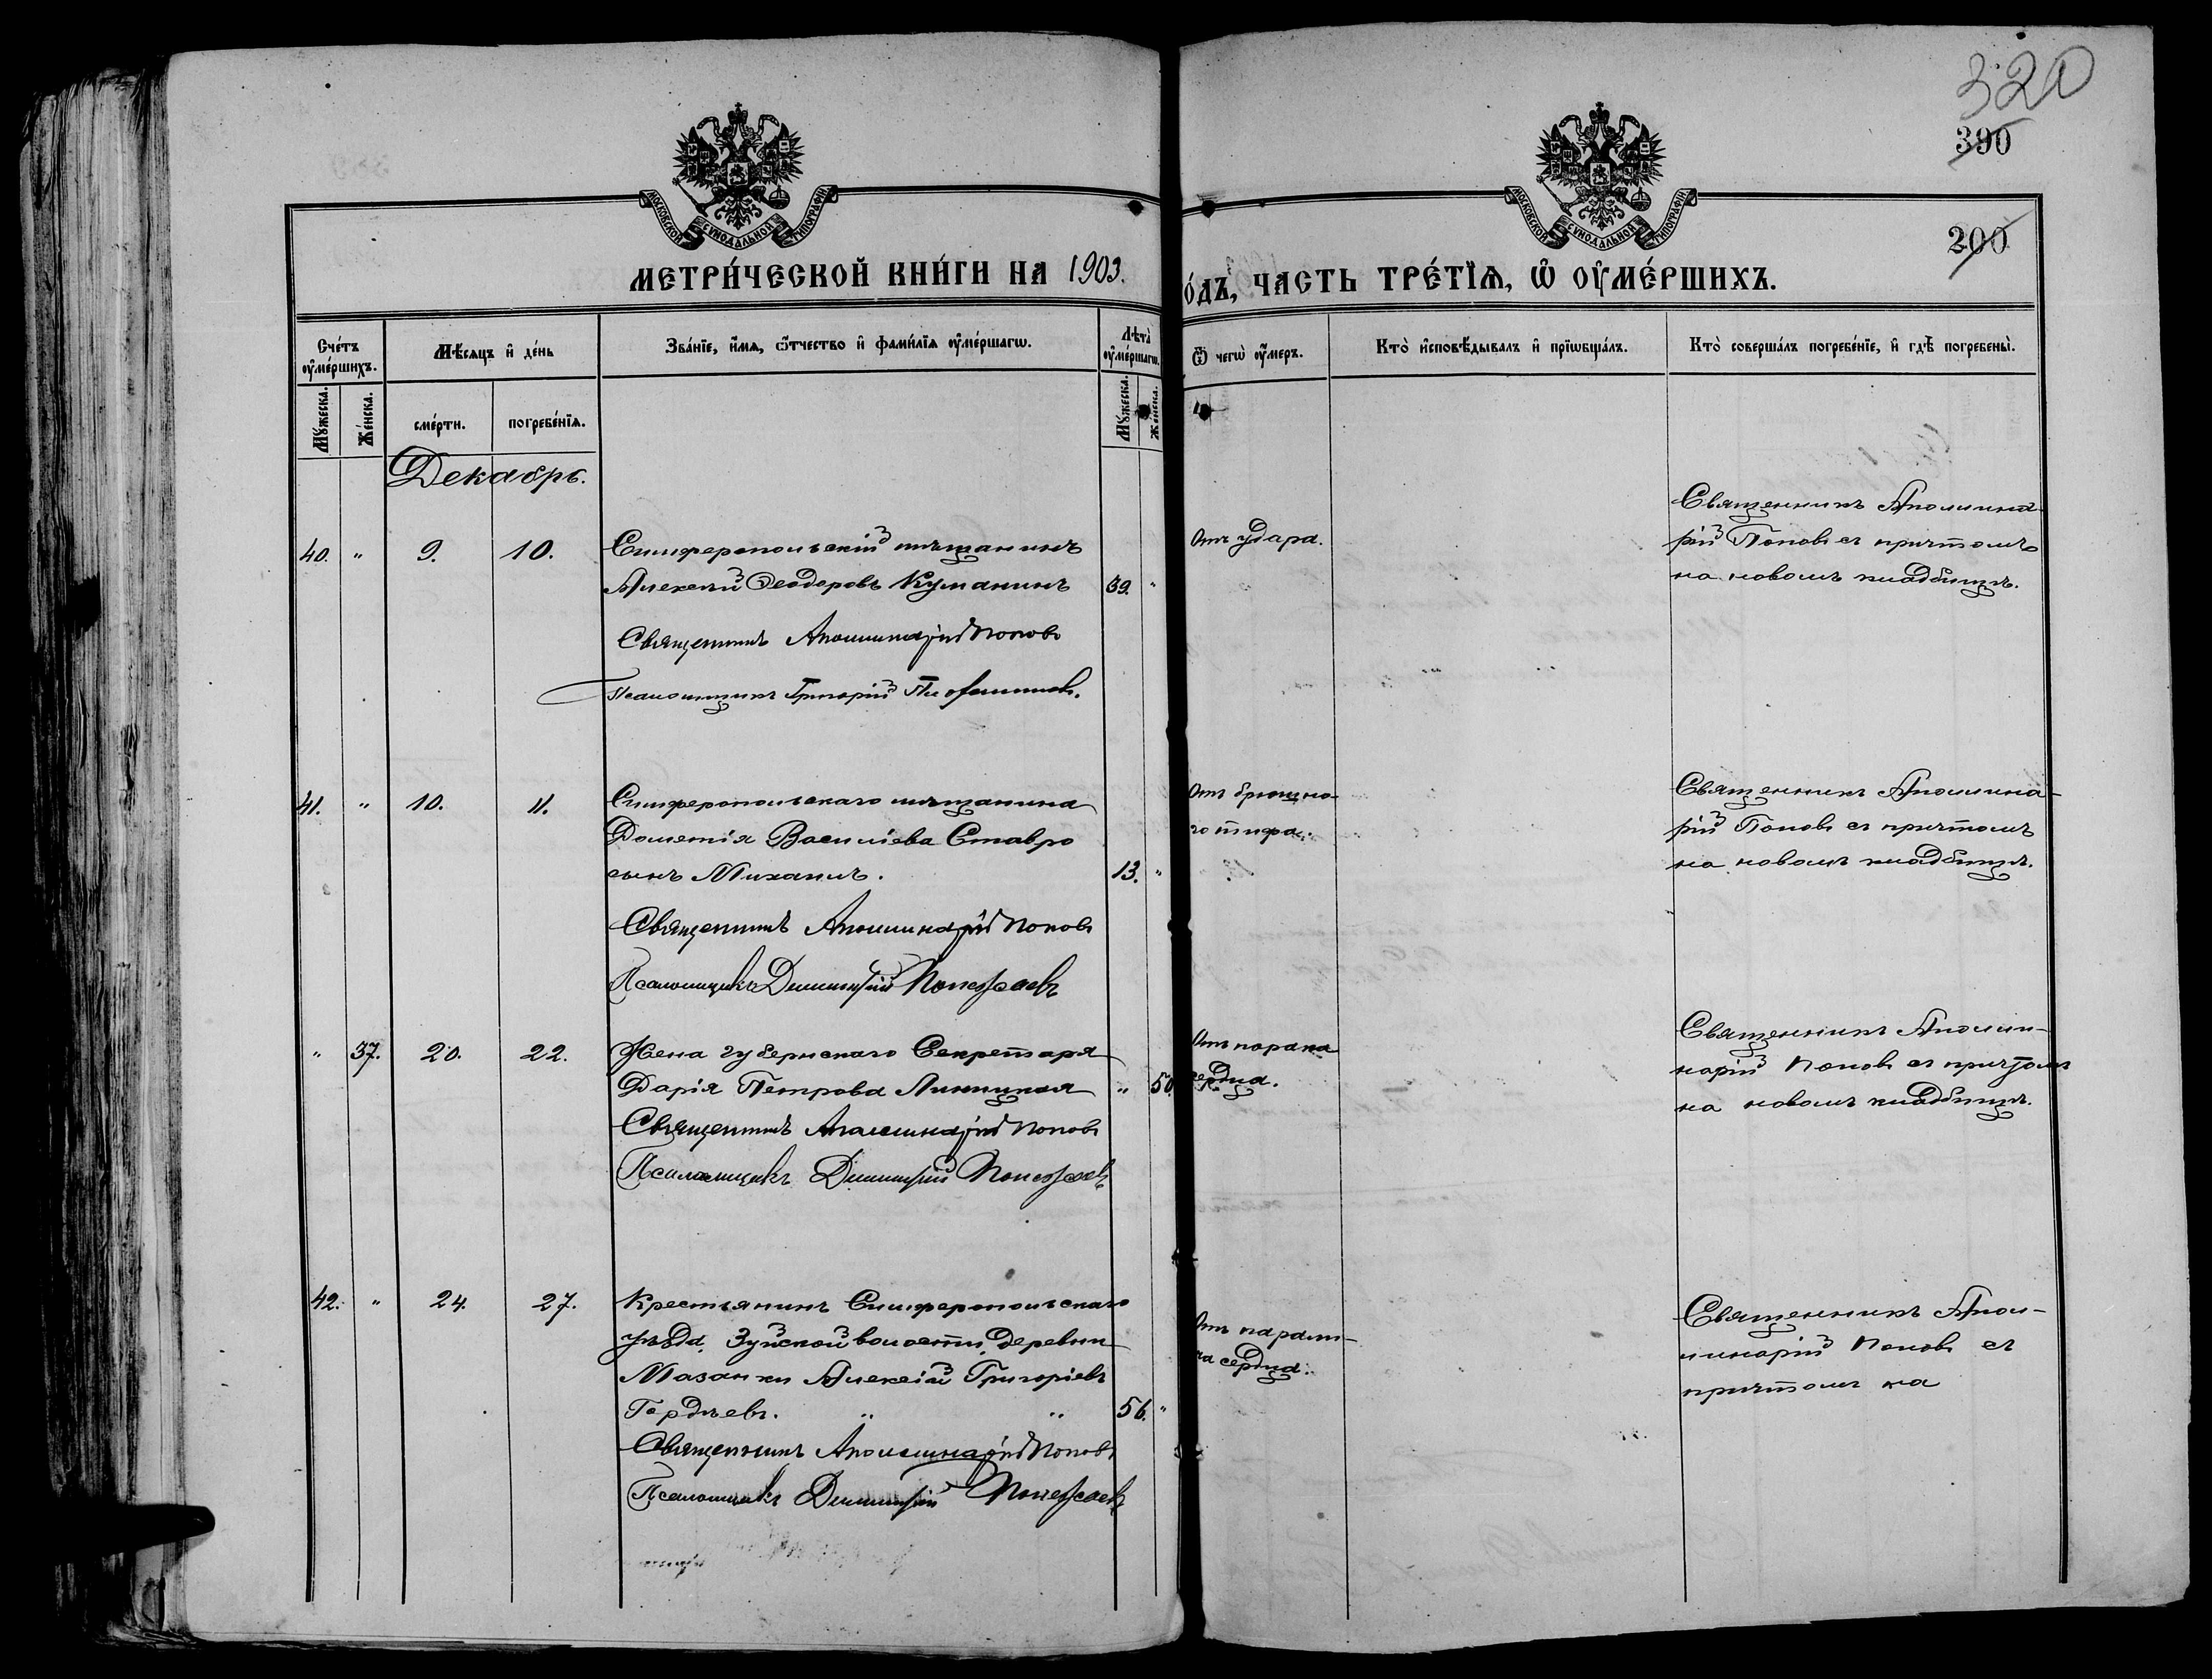 320
390
200
МОСКОВСКОЙ СѴНОДАЛЬНОЙ ТИПОГРАФІИ
МОСКОВСКОЙ СѴНОДАЛЬНОЙ ТИПОГРАФІИ
МЕТРИ́ЧЕСКОЙ КНИ́ГИ НА 1903.
О́ДЪ, ЧАСТЬ ТРЕ́ТЇѦ, Ѡ҆ ОУ҆МЕ́РШИХЪ.
Сче́тъ оу҆ме́ршихъ.
Мꙋжеска.
Же́нска.
Мѣ́сѧцъ и҆ де́нь
сме́рти.
погребе́нїѧ.
Зва́нїе, и҆́мѧ, ѻ҆́тчество и҆ фами́лїѧ оу҆ме́ршагѡ.
Лѣта̀ оу҆ме́ршагѡ.
Мꙋжеска.
Же́нска.
Ѿ чегѡ̀ оу҆́меръ.
Кто̀ и҆сповѣ́дывалъ и҆ прїѡбща́лъ.
Кто̀ соверша́лъ погребе́нїе, и҆ гдѣ̀ погребены̀.
Декабрь.
40. " 9. 10. Симферопольскій мѣщанинъ
Алексѣй Ѳеодоровъ Куманинъ 39. "
Священникъ Аполлинарій Поповъ
Псаломщикъ Григорій
Отъ удара.
Священникъ Аполлина-
рій Поповъ съ причтомъ
на новомъ кладбищѣ.
41. " 10. 11. Симферопольскаго мѣщанина
Дометія Василіева Ставро
сынъ Михаилъ. 13. "
Священникъ Аполлинарій Поповъ
Псаломщикъ Димитрій
Отъ брюшно-
го тифа.
Священникъ Аполлина-
рій Поповъ съ причтомъ
на новомъ кладбищѣ.
" 37. 20. 22. Жена губернскаго Секретаря
Дарія Петрова Липницкая " 50.
Священникъ Аполлинарій Поповъ
Псаломщикъ Димитрій
Отъ порока
сердца.
Священникъ Аполли-
нарій Поповъ съ причтомъ
на новомъ кладбищѣ.
42. " 24. 27. Крестьянинъ Симферопольскаго
уѣзда, Зуйской волости, деревни
Мазанки Алексій Григоріевъ
Гордѣевъ. " " 56. "
Священникъ Аполлинарій Поповъ
Псаломщикъ Димитрій
Отъ парали-
ча сердца.
Священникъ Апол-
линарій Поповъ съ
причтомъ на